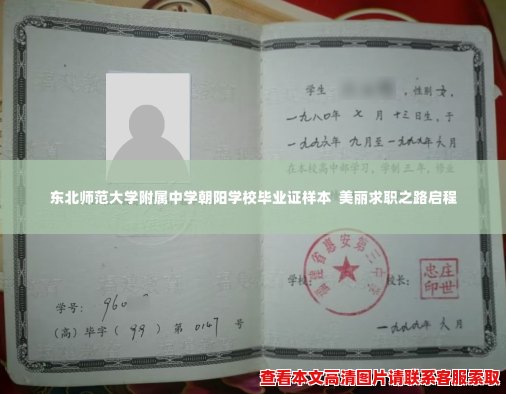 学生 ，性别 女，
一九八〇年 七 月 十三日生，于
一九九六年 九月至一九九九年 六月
在本校高中部学习，学制三年，修业
东北师范大学附属中学朝阳学校毕业证样本 美丽求职之路启程
福建省惠安第三中学
学校： 校长：
庄世忠印
学号： 960
（高）毕字（ 99 ）第 0147 号
一九九九年 六 月
查看本文高清图片请联系客服索取